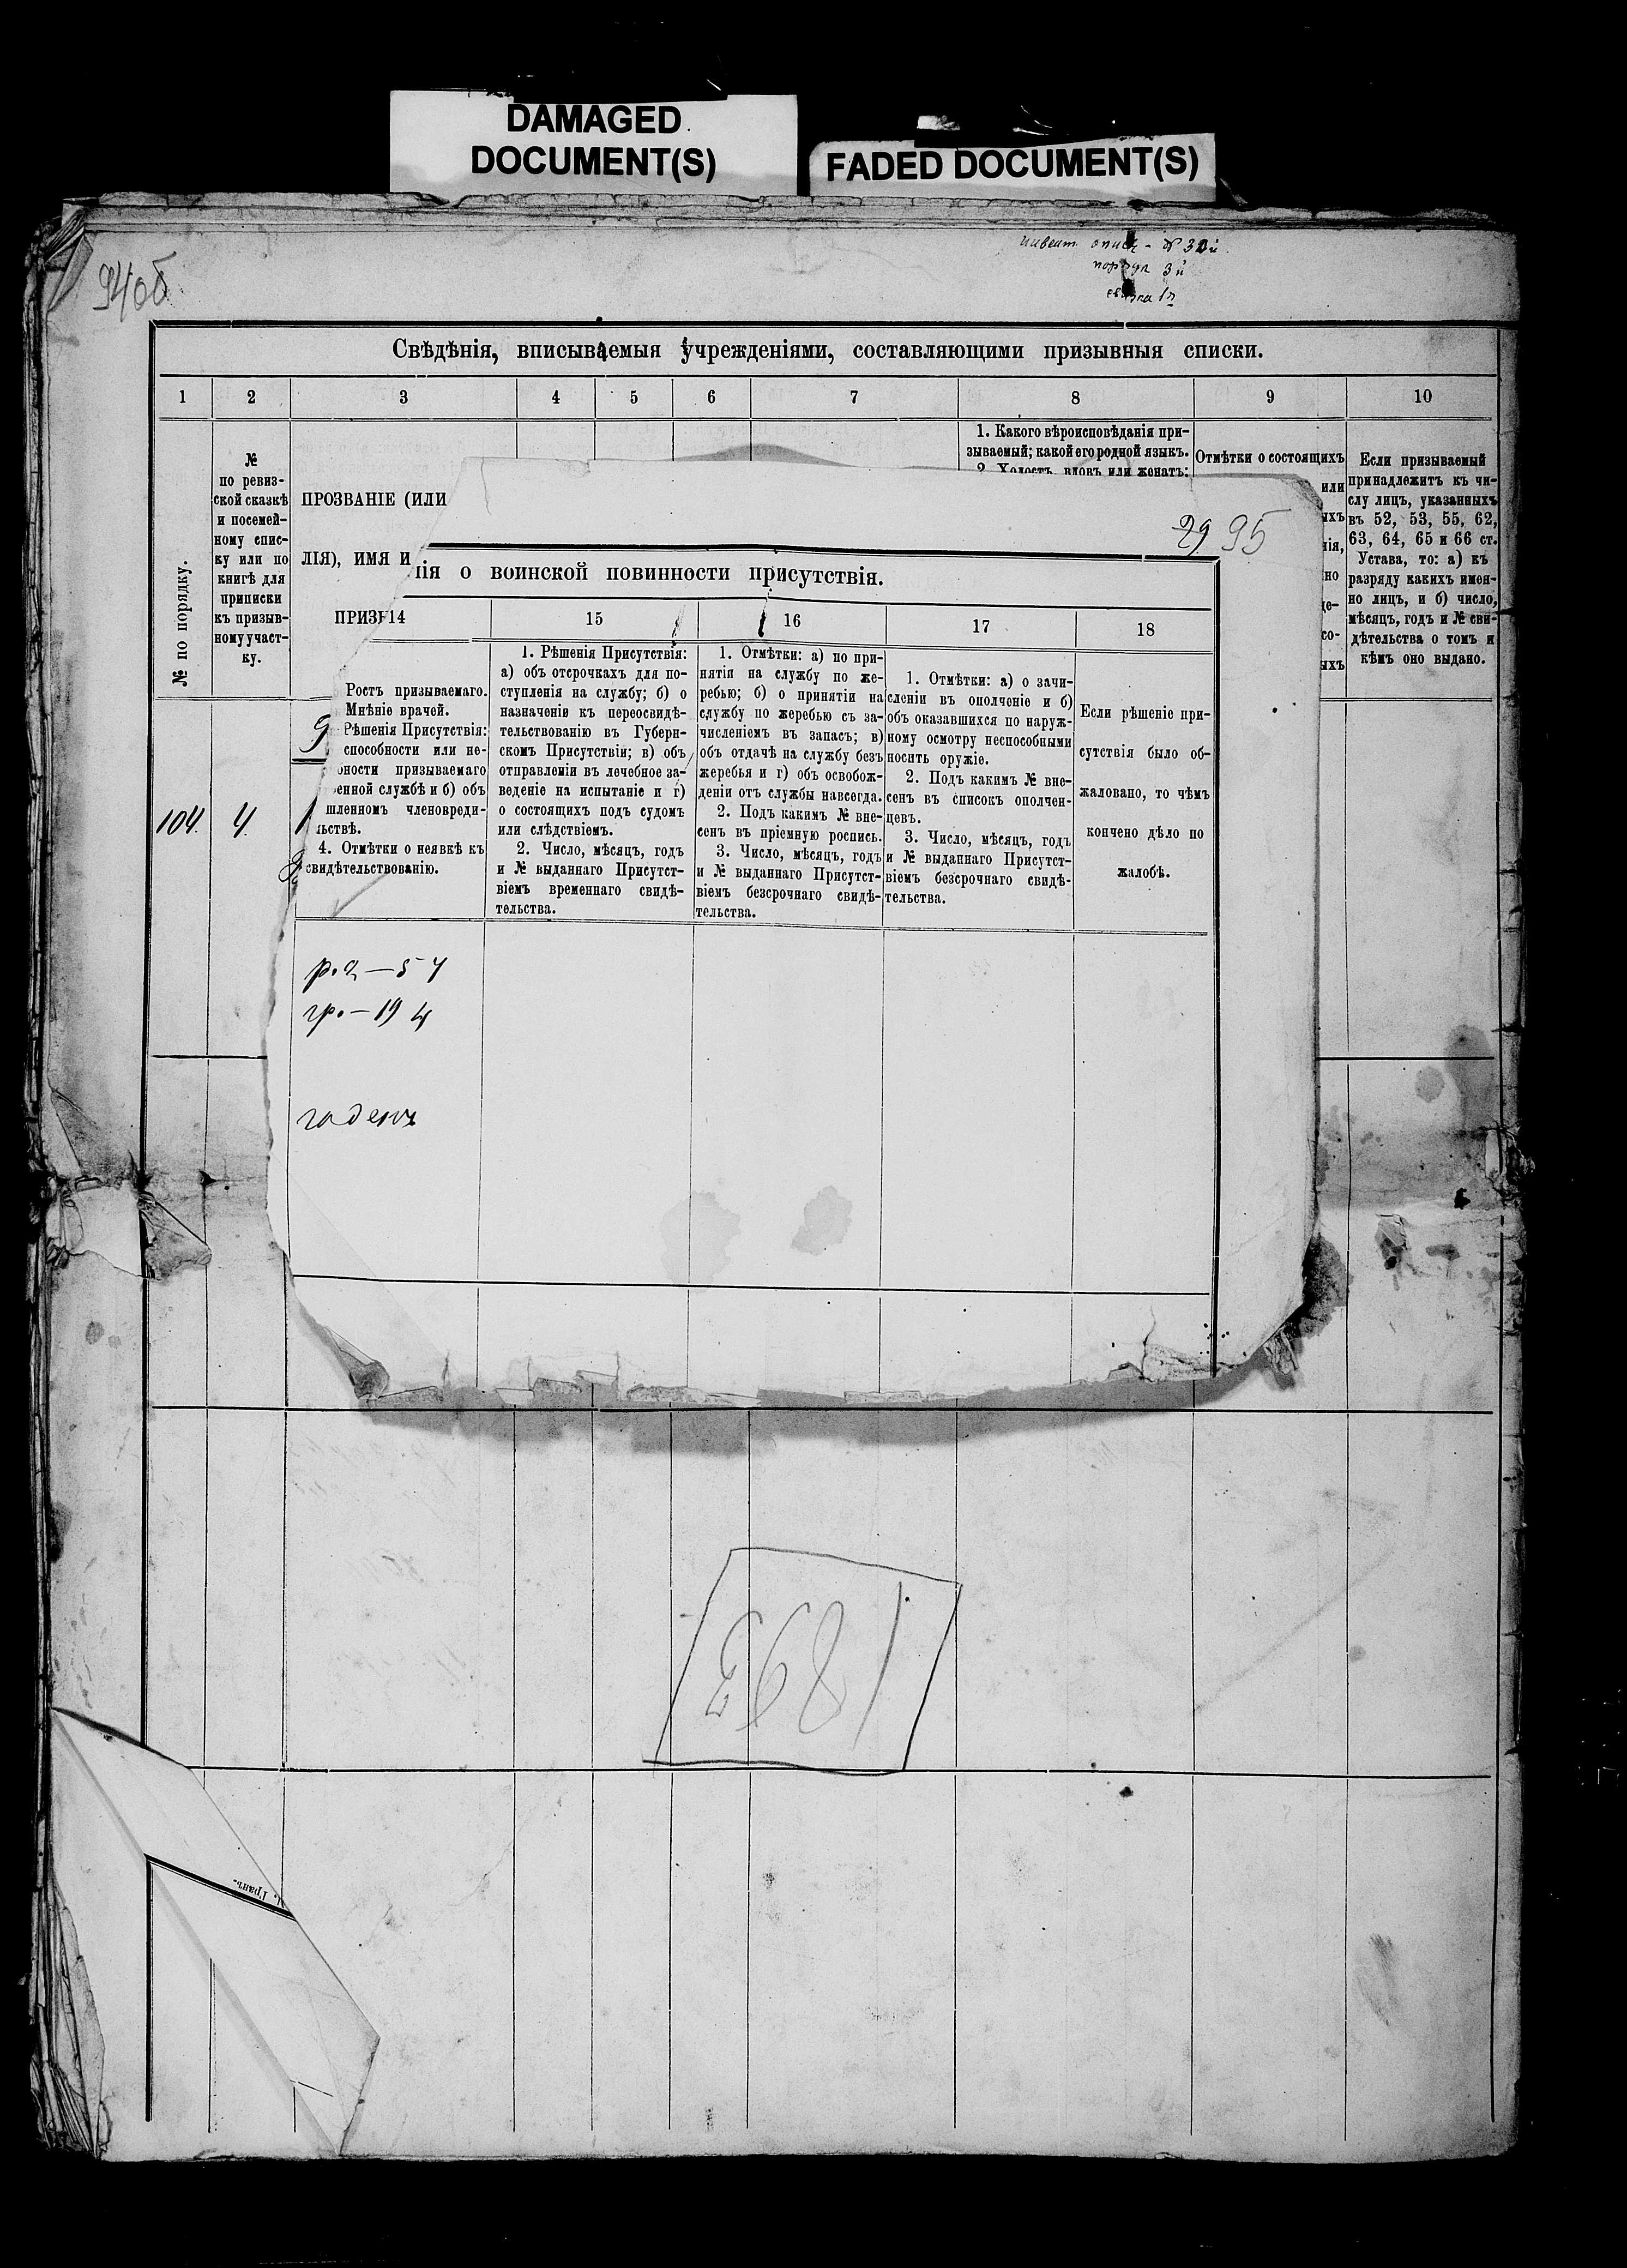 DAMAGED
DOCUMENT(S)
FADED DOCUMENT(S)
94об
Свѣдѣнія, вписываемыя учрежденіями, составляющими призывныя списки.
1 2 3 4 5 6 7 8 9 10
№ по порядку.
№
по ревиз-
ской сказкѣ
и посемей-
ному спис-
ку или по
книгѣ для
приписки
къ призыв-
ному участ-
ку.
ПРОЗВАНІЕ (ИЛИ
ЛІЯ), ИМЯ И
ПРИЗЫ
1. Какого вѣроисповѣданія при-
зываемый; какой его родной языкъ.
2. Холостъ, вдовъ или женатъ;
Отмѣтки о состоящихъ
или
ыхъ
нія,
но
де-
со-
ыхъ
Если призываемый
принадлежитъ къ чи-
слу лицъ, указанныхъ
въ 52, 53, 55, 62,
63, 64, 65 и 66 ст.
Устава, то: а) къ
разряду какихъ имен-
но лицъ, и б) число,
мѣсяцъ, годъ и № сви-
дѣтельства о томъ и
кѣмъ оно выдано.
104. 4.
29 95
нія о воинской повинности присутствія.
14 15 16 17 18
Ростъ призываемаго.
Мнѣніе врачей.
Рѣшенія Присутствія:
способности или не-
бности призываемаго
енной службѣ и б) объ
шленномъ членовреди-
льствѣ.
4. Отмѣтки о неявкѣ къ
свидѣтельствованію.
1. Рѣшенія Присутствія:
а) объ отсрочкахъ для по-
ступленія на службу; б) о
назначеніи къ переосвидѣ-
тельствованію въ Губерн-
скомъ Присутствіи; в) объ
отправленіи въ лечебное за-
веденіе на испытаніе и г)
о состоящихъ подъ судомъ
или слѣдствіемъ.
2. Число, мѣсяцъ, годъ
и № выданнаго Присутст-
віемъ временнаго свидѣ-
тельства.
1. Отмѣтки: а) по при-
нятія на службу по же-
ребью; б) о принятіи на
службу по жеребью съ за-
численіемъ въ запасъ; в)
объ отдачѣ на службу безъ
жеребья и г) объ освобож-
деніи отъ службы навсегда.
2. Подъ какимъ № вне-
сенъ въ пріемную роспись.
3. Число, мѣсяцъ, годъ
и № выданнаго Присутст-
віемъ безсрочнаго свидѣ-
тельства.
1. Отмѣтки: а) о зачи-
сленіи въ ополченіе и б)
объ оказавшихся по наруж-
ному осмотру неспособными
носить оружіе.
2. Подъ какимъ № вне-
сенъ въ списокъ ополчен-
цевъ.
3. Число, мѣсяцъ, годъ
и № выданнаго Присутст-
віемъ безсрочнаго свидѣ-
тельства.
Если рѣшеніе при-
сутствія было об-
жаловано, то чѣмъ
кончено дѣло по
жалобѣ.
гр.—19 4
годенъ
1893
Гранъ.